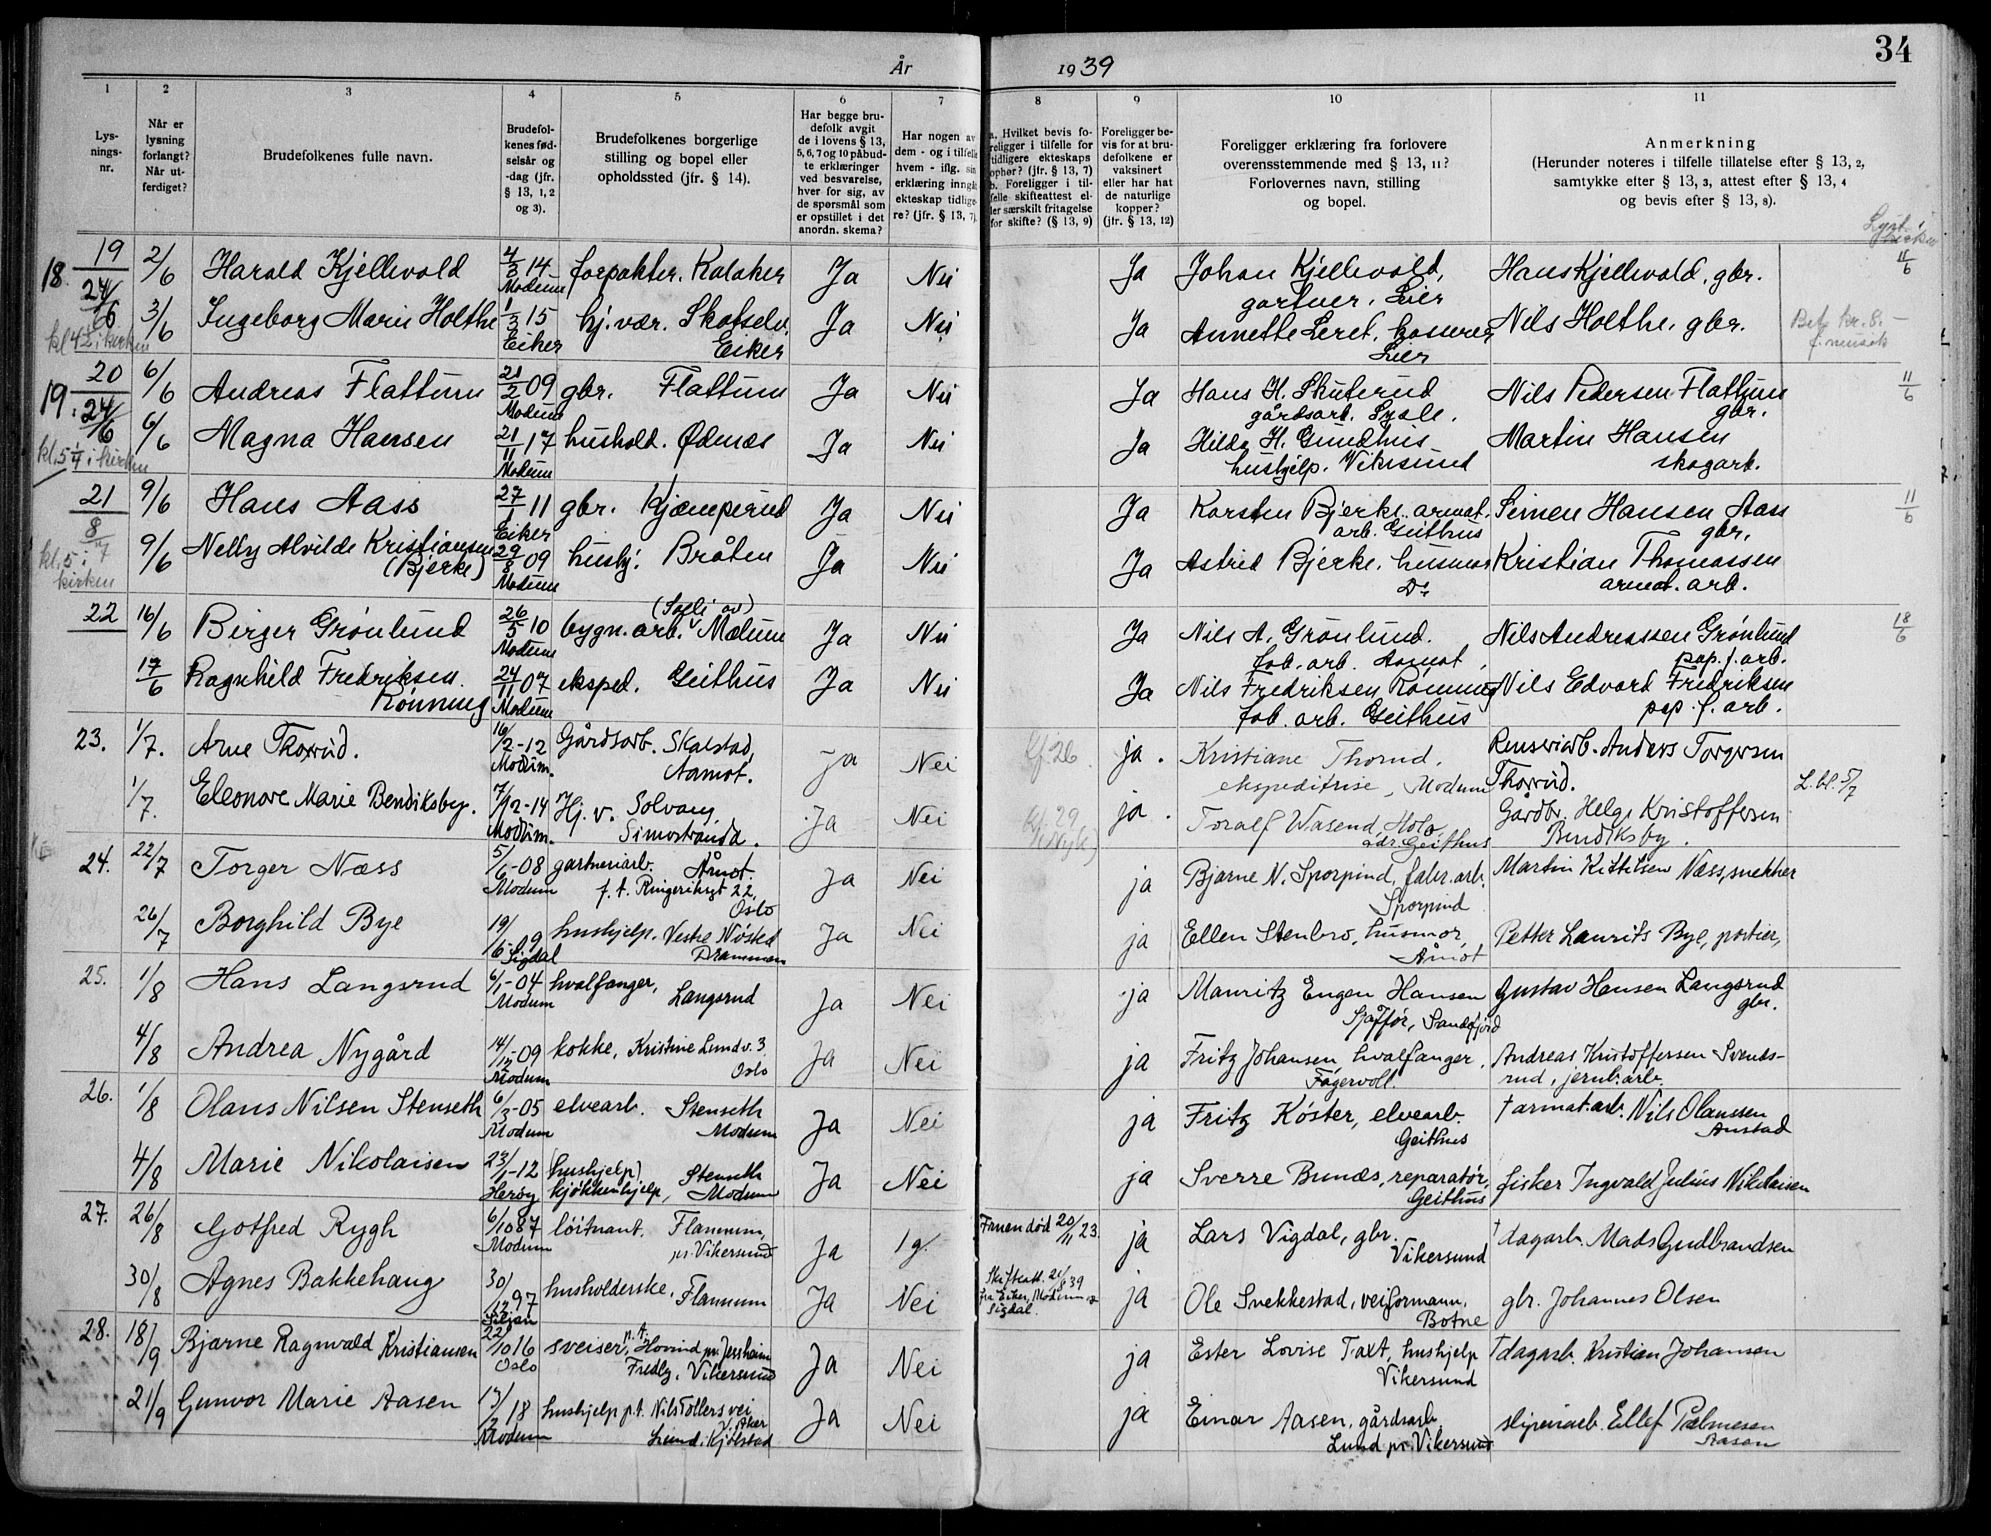 34
År 1939
1 2 3 4 5 6 7 8 9 10 11
Lysningsnr.
Når er lysning forlangt? Når utferdiget?
Brudefolkenes fulle navn.
Brudefolkenes fødselsår og -dag (jfr. § 13, 1, 2 og 3).
Brudefolkenes borgerlige stilling og bopel eller opholdssted (jfr. § 14).
Har begge brudefolk avgit de i lovens § 13, 5, 6, 7 og 10 påbudte erklæringer ved besvarelse, hver for sig, av de spørsmål som er opstillet i det anordn. skema?
Har nogen av dem - og i tilfelle hvem - iflg. sin erklæring inngått ekteskap tidligere? (jfr. § 13, 7).
a. Hvilket bevis foreligger i tilfelle for tidligere ekteskaps ophør? (jfr. § 13, 7) b. Foreligger i tilfelle skifteattest eller særskilt fritagelse for skifte? (§ 13, 9)
Foreligger bevis for at brudefolkene er vaksinert eller har hat de naturlige kopper? (jfr. § 13, 12)
Foreligger erklæring fra forlovere overensstemmende med § 13, 11? Forlovernes navn, stilling og bopel.
Anmerkning (Herunder noteres i tilfelle tillatelse efter § 13, 2, samtykke efter § 13, 3, attest efter § 13, 4 og bevis efter § 13, 8).
18. 19 24/6 2/6 Harald Kjellevold 4/3 14 Modum forpakter. Kalaker Ja Nei Ja Johan Kjellevold, gartner, Lier Hans Kjellevold, gbr. 11/6
kl 4½ i kirken 3/6 Ingeborg Marie Holthe 1/3 15 Eiker hj. vær. Skotselv. Eiker Ja Nei Ja Annette Leret, kasserer Lier Nils Holthe, gbr. Bet. kr. 8.-
19. 20 24/6 6/6 Andreas Flattum 21/2 09 Modum gbr. Flattum Ja Nei Ja Hans H. Skuterud gårdsarb. Sysle. Nils Pedersen Flattum gbr. 11/6
kl. 5¼ i kirken 6/6 Magna Hansen 21/11 17 Modum hushold. Ødenæs Ja Nei Ja Hilda H. Gundhus hushjelp. Vikesund Martin Hansen skogarb.
21 8/7 9/6 Hans Aass 27/1 11 Eiker gbr. Kjæmperud Ja Nei Ja Karsten Bjerke armat. arb. Geithus Simen Hansen Aass gbr. 11/6
kl. 5 i kirken 9/6 Nelly Alvilde Kristiansen (Bjerke) 29/8 09 Modum hushj. Bråten Ja Nei Ja Astrid Bjerke. husmor Do Kristian Thomassen armat. arb.
22 16/6 Birger Grønlund 26/5 10 Modum bygn. arb. Modum Ja Nei Ja Nils A. Grønlund. fab. arb. Aamot Nils Andreassen Grønlund pap. f. arb. 18/6
17/6 Ragnhild Fredriksen Rønning 24/11 07 Modum eksped. Geithus Ja Nei Ja Nils Fredriksen Rønning fab. arb. Geithus Nils Edvard Fredriksen pap. f. arb.
23. 1/7. Arne Thorrud. 16/2-12 Modum. Gårdsarb. Skalstad, Aamot. Ja Nei ja. Kristiane Thorrud. ekspeditrise, Modum Renseriarb. Anders Torgersen Thorrud.
1/7. Eleonore Marie Bendiksby. 7/12-14 Modum. Hj. v. Solvang, Simostranda. Ja Nei ja. Toralf Wasend, Holo, adr. Geithus Gårdbr. Helge Kristoffersen Bendiksby. L. bl. 5/7
24. 22/7 Torger Næss 5/6-08 Modum gartneriarb. Åmot. f. t. Ringeriksgt 22, Oslo Ja Nei ja Bjarne N. Sporpind, fabr. arb. Sporpind Martin Kittilsen Næss, snekker
26/7 Borghild Bye 19/6-09 Sigdal hushjelp. Vestre Nøsted Drammen Ja Nei ja Ellen Stenbro, husmor, Åmot Petter Laurits Bye, portier,
25. 1/8 Hans Langsrud 6/1-04 Modum hvalfanger, Langsrud Ja Nei ja Mauritz Eugen Hansen Sjåffør, Sandefjord Gustav Hansen Langsrud gbr.
4/8 Andrea Nygård 14/12-09 Modum kokke, Kristine Lundv. 3 Oslo Ja Nei ja Fritz Johansen hvalfanger. Fagervoll Andreas Kristoffersen Svendsrud, jernb. arb.
26. 1/8 Olaus Nilsen Stenseth 6/3-05 Modum elvearb. Stenseth Modum Ja Nei ja Fritz Köster, elvearb. Geithus † armat. arb. Nils Olaussen Anstad
4/8 Marie Nikolaisen 23/1-12 Herøy (hushjelp) kjøkkenhjelp, Stenseth Modum Ja Nei ja Sverre Bunæs, reparatør, Geithus fisker Ingvald Julius Nikolaisen
27. 26/8 Gotfred Rygh 6/10 87 Modum løitnant. Flannum, pr. Vikersund Ja 1 g. Fruen død 20/11 23. ja Lars Vigdal, gbr. Vikersund † dagarb. Mads Gudbrandsen
30/8 Agnes Bakkehaug 30/12 97 Siljan husholderske, Flannum Ja Nei Skifteatt. 21/8 39 fra Eiker, Modum og Sigdal. ja Ole Snekkestad, veiformann, Botne gbr. Johannes Olsen
28. 18/9 Bjarne Ragnvald Kristiansen 22/10 16 Oslo sveiser, p. t. Hovind pr. Jessheim Fredly, Vikersund Ja Nei ja Ester Lovise Taxt, hushjelp Vikersund † dagarb. Kristian Johansen
21/9 Gunvor Marie Aasen 17/2 18 Modum hushjelp p. t. Nils Tollers vei V. Aker Lund, Kjølstad Ja Nei ja Einar Aasen, gårdsarb. Lund pr. Vikersund sliperiarb. Ellef Palmesen Aasen